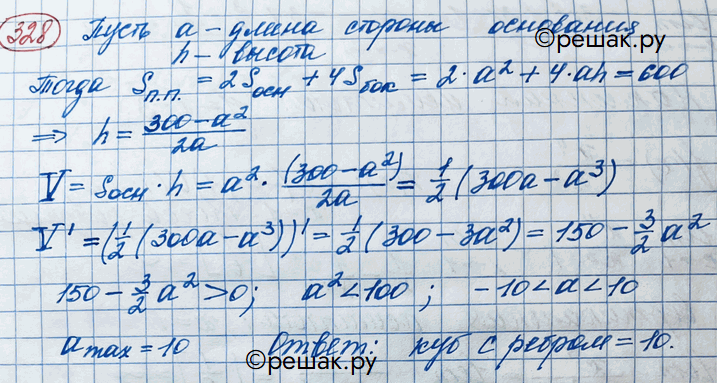 328 Пусть a - длина стороны основания
h - высота
©решак.ру
Тогда Sп.п. = 2Sосн + 4Sбок = 2·a² + 4·ah = 600
⇒ h = (300-a²)/2a
V = Sосн·h = a²·(300-a²)/2a = 1/2(300a-a³)
V' = (1/2(300a-a³))' = 1/2(300-3a²) = 150 - 3/2 a²
150 - 3/2 a² > 0; a² < 100; -10 < a < 10
amax = 10 Ответ: куб с ребром = 10.
©решак.ру